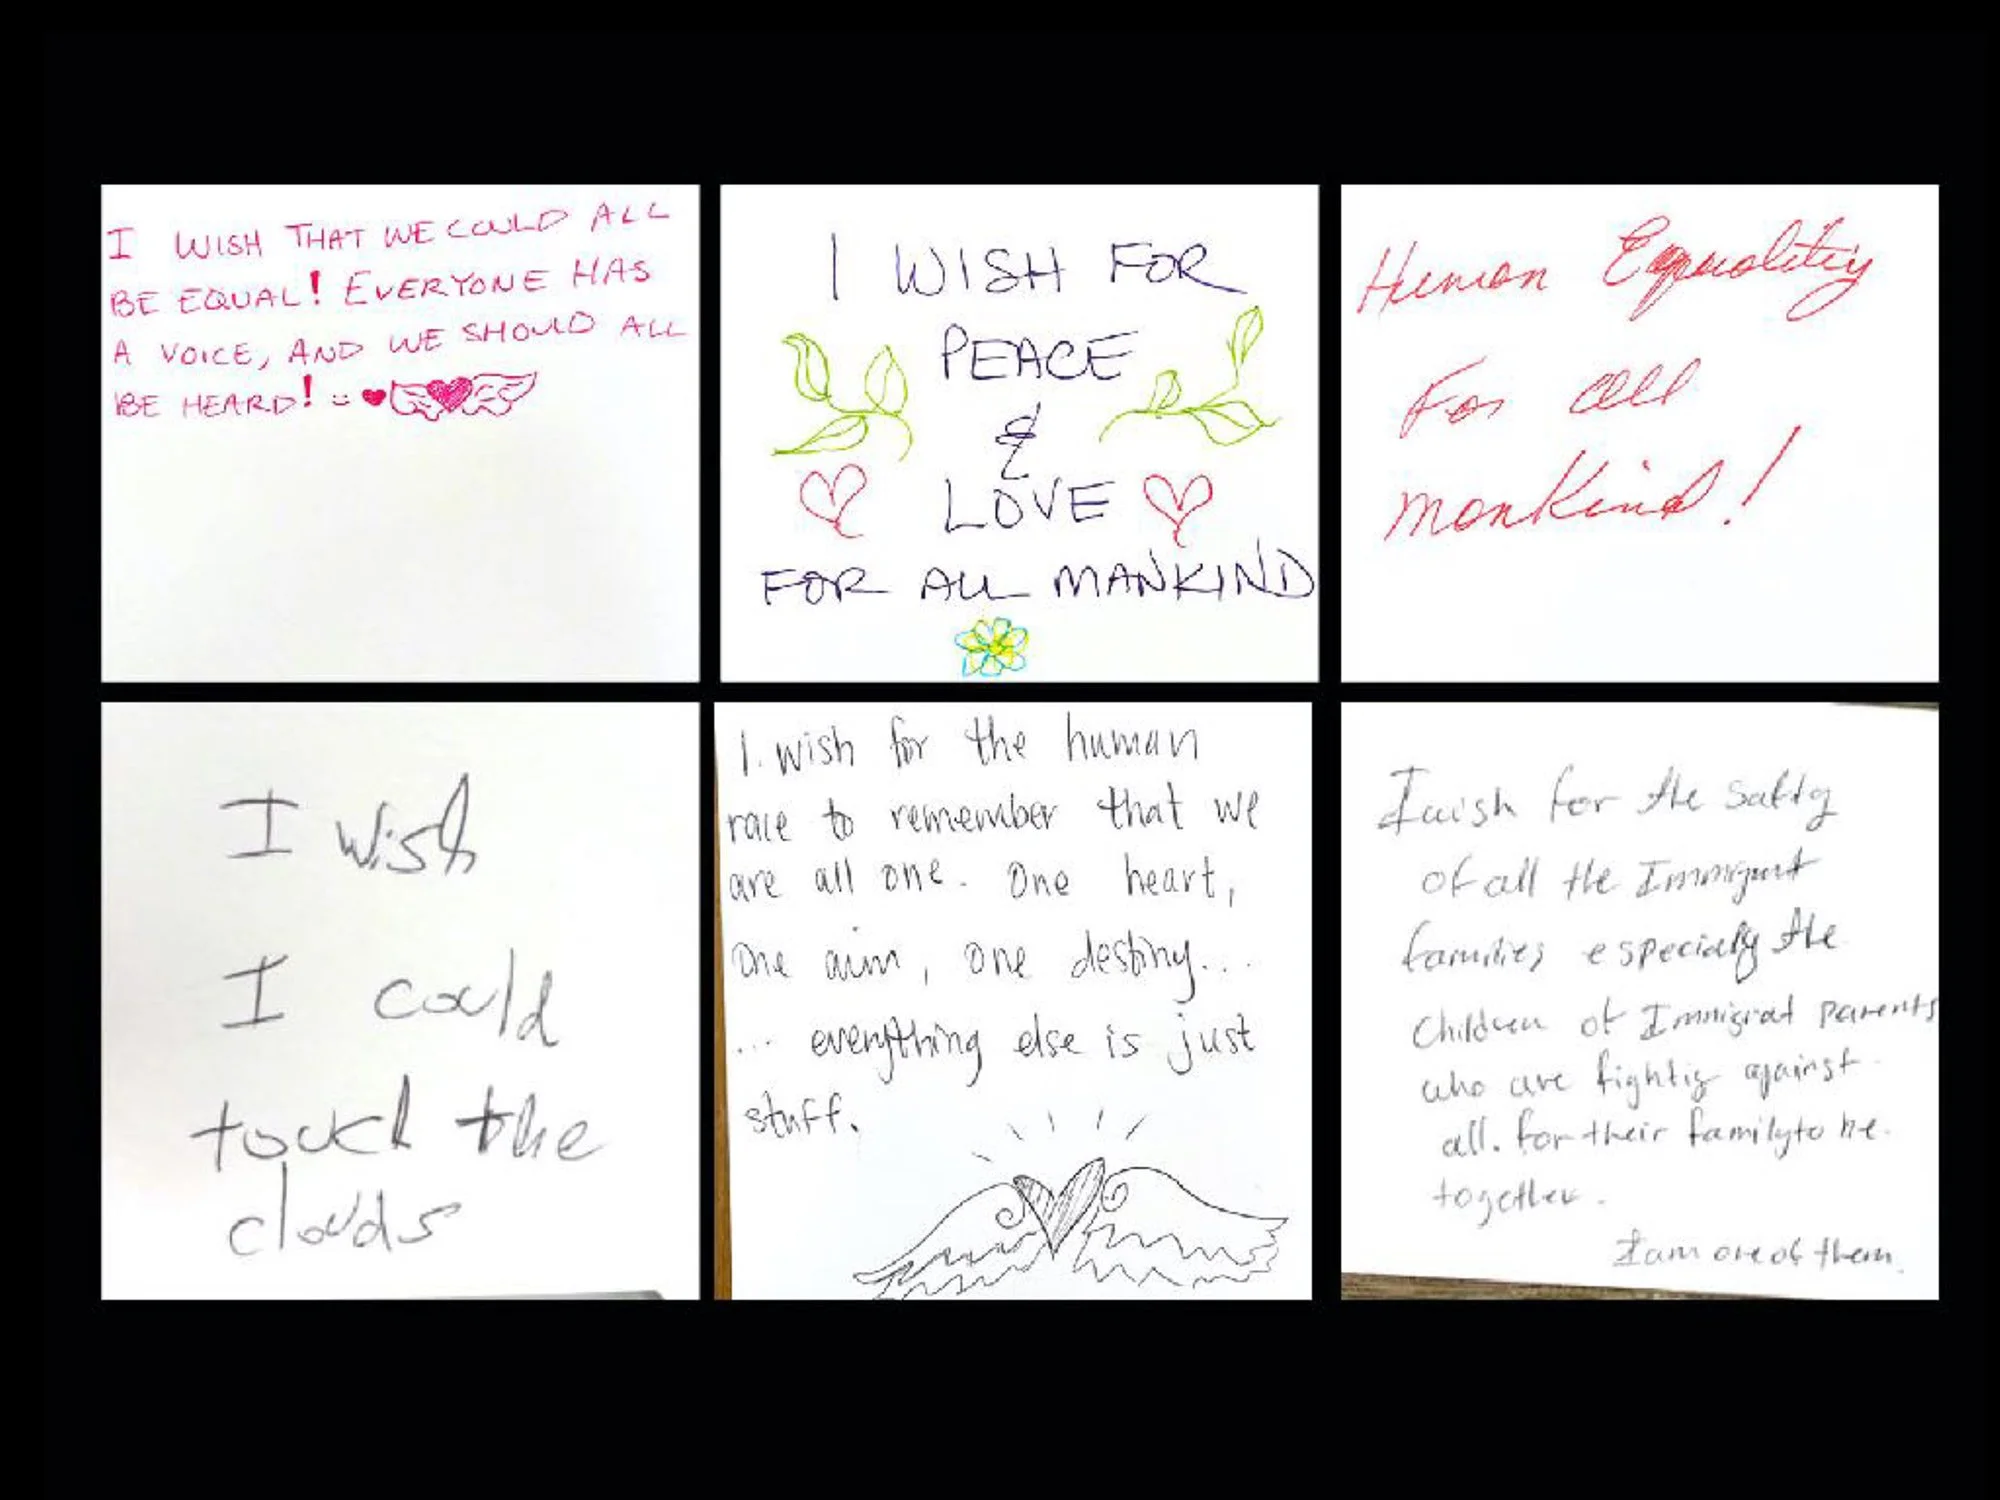 I WISH THAT WE COULD ALL
BE EQUAL! EVERYONE HAS
A VOICE, AND WE SHOULD ALL
BE HEARD!
I WISH FOR
PEACE
&
LOVE
FOR ALL MANKIND
Human Equality
For all
mankind!
I wish
I could
touch the
clouds
I wish for the human
race to remember that we
are all one. One heart,
One aim, one destiny...
... everything else is just
stuff.
I wish for the safty
of all the Immigrant
families especially the
Children of Immigrat parents
who are fightig against
all. for their family to be
together.
I am one of them.